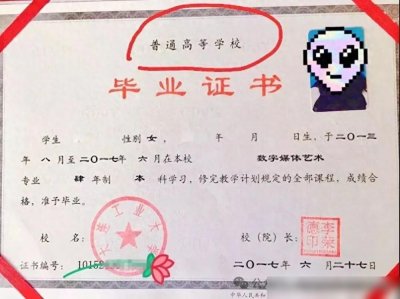 普通高等学校
毕业证书
学生 性别 女, 年 月 日生,于二〇一三
年 八 月至二〇一七年 六 月在本校 数字媒体艺术
专业 肆 年制 本 科学习,修完教学计划规定的全部课程,成绩合
格,准予毕业。
校 名: 校(院)长:
工业大学
李荣德印
证书编号: 10152 二〇一七年 六 月二十七日
中华人民共和